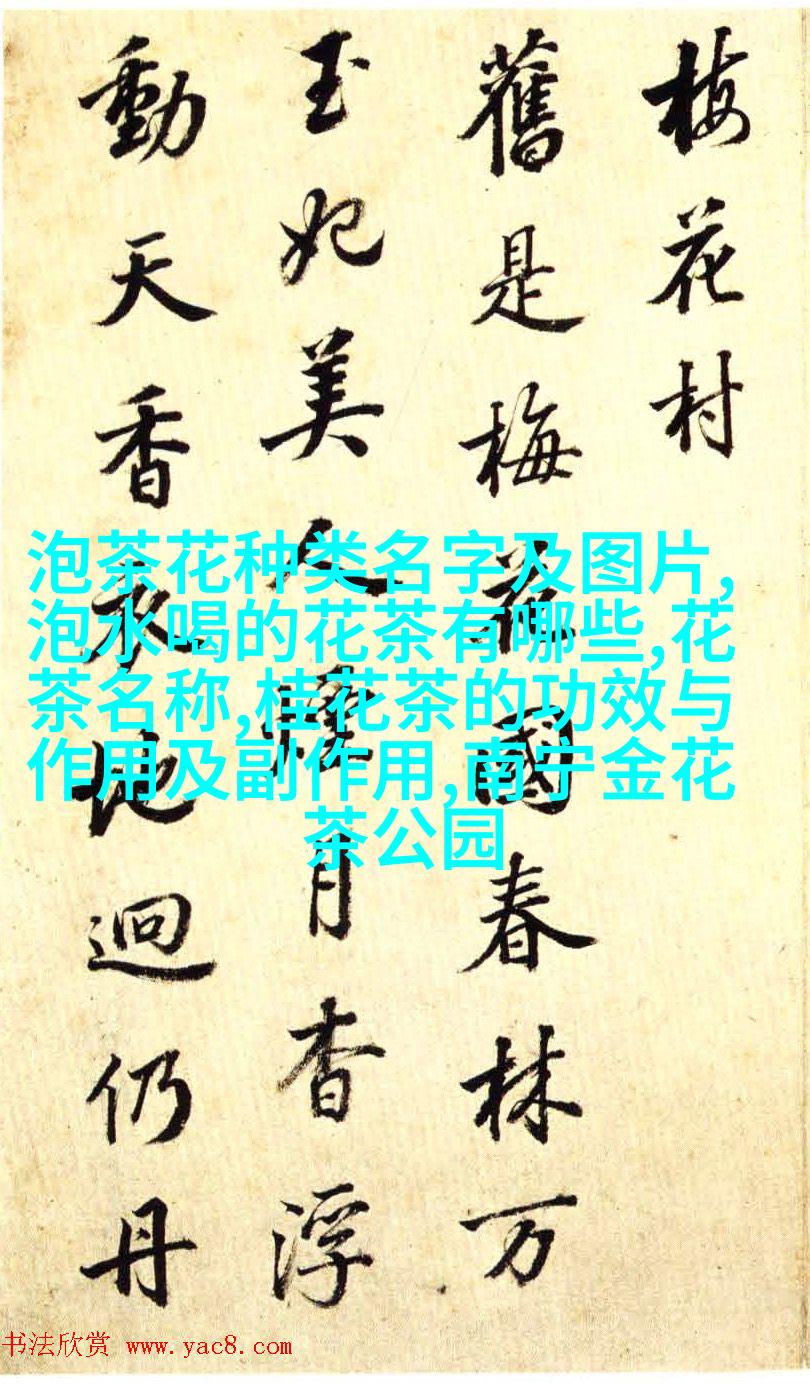 梅花村
舊是梅花國春林万
玉妃美人月香浮
動天香表地迥仍丹
泡茶花种类名字及图片,
泡水喝的花茶有哪些,花
茶名称,桂花茶的功效与
作用及副作用,南宁金花
茶公园
书法欣赏 www.yac8.com